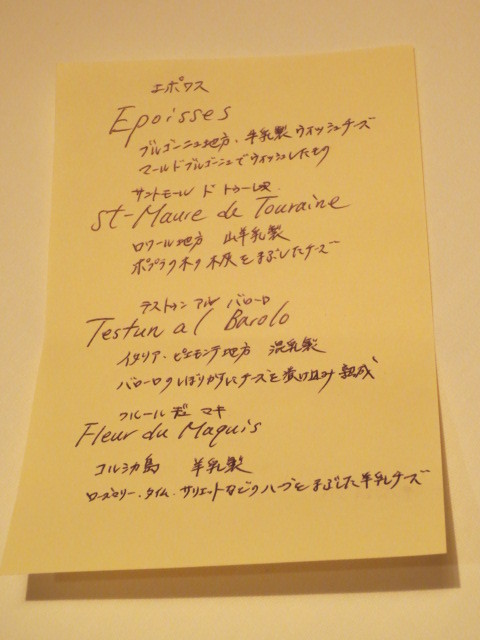 エポワス
Epoisses
ブルゴーニュ地方・牛乳製ウォッシュチーズ
マールドブルゴーニュでウォッシュしたもの
サントモール ド トゥーレヌ
St-Maure de Touraine
ロワール地方 山羊乳製
ポプラの木の木灰をまぶしたチーズ
テストゥン アル バローロ
Testun al Barolo
イタリア・ピエモンテ地方 混乳製
バローロのしぼりかすにチーズを漬け込み熟成
フルール デュ マキ
Fleur du Maquis
コルシカ島 羊乳製
ローズマリー・タイム・サリエットなどのハーブをまぶした羊乳チーズ